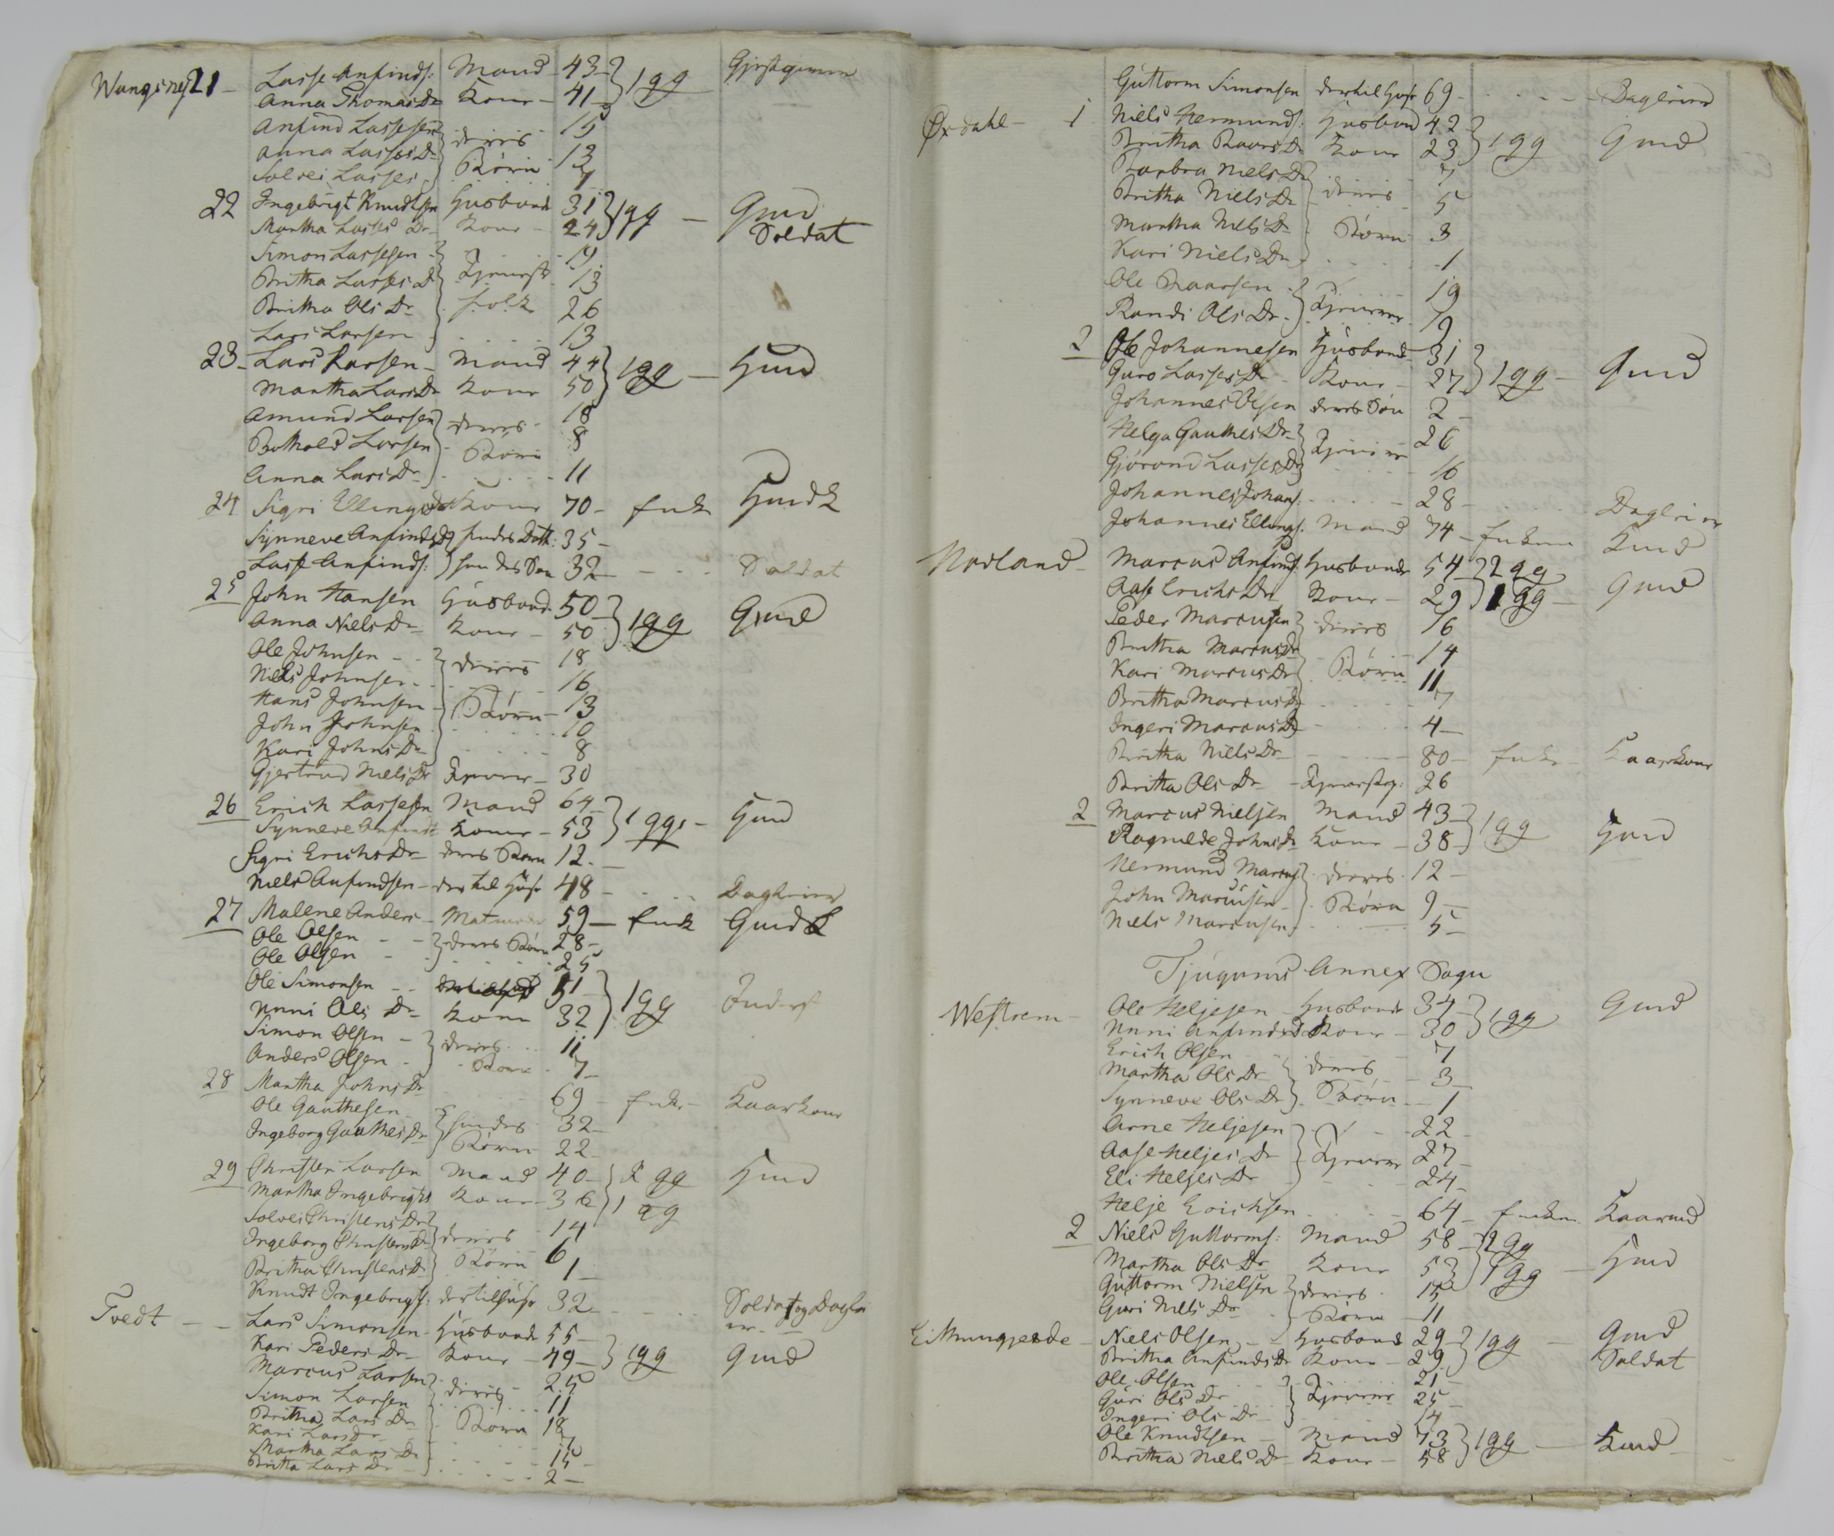 Wangsnes 21 - Lasse Anfinds: Mand 43 1 gg Gjestgiver
Anna Thomas Dr Kone - 41
Anfind Lassesen deres 15
Anna Lasses Dr Børn 13
Solvei Lasses 7
22 Ingebrigt Knudtsen Husbond 31 1 gg - Gmd
Martha Lasses Dr Kone - 24 Soldat
Simon Lassesen 19
Britha Lasses D Tjeneste 13
Britha Ols Dr folk 26
Lars Larsen 13
23 - Lars Larsen - Mand 44 1 gg - Hmd
Martha Lars Dr Kone 50
Amund Larsen deres 18
Bothold Larsen Børn 8
Anna Lars Dr 11
24 Sigri Ellings Kone 70 - Enke
Synneve Anfinds D hendes Datt: 35 -
Lasse Anfinds: hendes Søn 32 Soldat
25 John Hansen Husbond 50 1 gg Gmd
Anna Niels Dr Kone - 50
Ole Johnsen - - deres 18
Niels Johnsen - 16
Hans Johnsen - Børn - 13
John Johnsen 10
Kari Johns Dr 8
Gjertrud Niels Dr Tjener - 30
26 Erich Lassesen Mand 64 1 gg - Hmd
Synneve Anfinds Kone - 53
Sigri Erichs Dr deres Barn 12 -
Niels Anfindsen - der til Huse 48 - Dagleier
27 Malene Anders - 59 - Enke
Ole Olsen - - deres Børn 28 -
Ole Olsen - 25
Ole Simonsen - - 51 1 gg Inderst
Unni Ols Dr Kone 32
Simon Olsen - deres 11
Anders Olsen - Børn 7 -
28 Martha Johns Dr 69 - Enke - Kaarkone
Ole Gauthesen hendes 32 -
Ingeborg Gauthes Dr Børn 22 -
29 Christen Larsen Mand 40 - gg Hmd
Martha Ingebrigts Kone - 36 1 gg
Solvei Christens Dr deres 14
Ingeborg Christens Dr Børn 6
Britha Christens D 1
Knudt Ingebrigts: der til Huse 32 Soldat og Daglei
er -
Tvedt - - Lars Simonsen - Husbond 55 - 1 gg Gmd
Kari Peders Dr Kone - 49 -
Marcus Larsen deres - 25
Simon Larsen 11
Britha Lars Dr Børn 18
Kari Lars Dr 7
Martha Lars Dr 15
Britta Lars Dr 2 -
Guttorm Simonsen der til Huse 69 - - Dagleier
Øxdahl - 1 Niels Hermunds: Husbond 42 1 gg Gmd
Britha Baars Dr Kone 23
Barbra Niels D 7
Britha Niels Dr deres 5
Martha Niels D Børn 3
Kari Niels Dr 1
Ole Baarsen 19
Randi Ols Dr - Tjenere 19
2 Ole Johannesen Husbond 31 1 gg - Gmd
Guro Lasses Dr Kone - 27
Johannes Olsen deres Søn 2 -
Helga Gauthes Dr Tjenere 26
Gjørond Lasses D 16
Johannes Johans: 28 - Dagleier
Johannes Ellings: Mand 74 - Enkem
Norland - Marcus Anfinds: Husbonde 54 2 gg Gmd
Aase Erichs Dr Kone - 29 1 gg -
Peder Marcusen deres 16
Britha Marcus Dr 14
Kari Marcus Dr Børn 11
Britha Marcus D 7
Ingeri Marcus D 4 -
Britha Niels Dr 80 - Enke - Kaarkone
Britha Ols Dr - 26
2 Marcus Nielsen Mand 43 1 gg Hmd
Ragnilde Johns Dr Kone - 38 -
Hermund Marcus deres 12 -
John Marcusen - Børn 9 -
Niels Marcusen 5 -
Tjugums Annex Sogn
Westrem - Ole Heljesen - Husbonde 34 - 1 gg Gmd
Unni Anfinds D Kone - 30
Erich Olsen deres 7
Martha Ols Dr 3
Synneve Ols Dr Børn 1
Arne Heljesen 22 -
Aase Heljes Dr Tjenere 27 -
Eli Heljes Dr 24 -
Helje Erichsen 64 - Enkem Kaarmd
2 Niels Guttorms: Mand 58 - 2 gg Hmd
Martha Ols Dr Kone 53 1 gg -
Guttorm Nielsen deres 15
Guri Niels Dr Børn 11
Niels Olsen - Husbond 29 - 1 gg - Gmd
Britha Anfinds Dr Kone - 29 Soldat
Ole Olsen 21 -
Guri Ols Dr Tjenere 25 -
Ingeri Ols Dr 14
Ole Knudtsen Mand 73 1 gg - Kmd
Britha Niels Dr Kone - 58